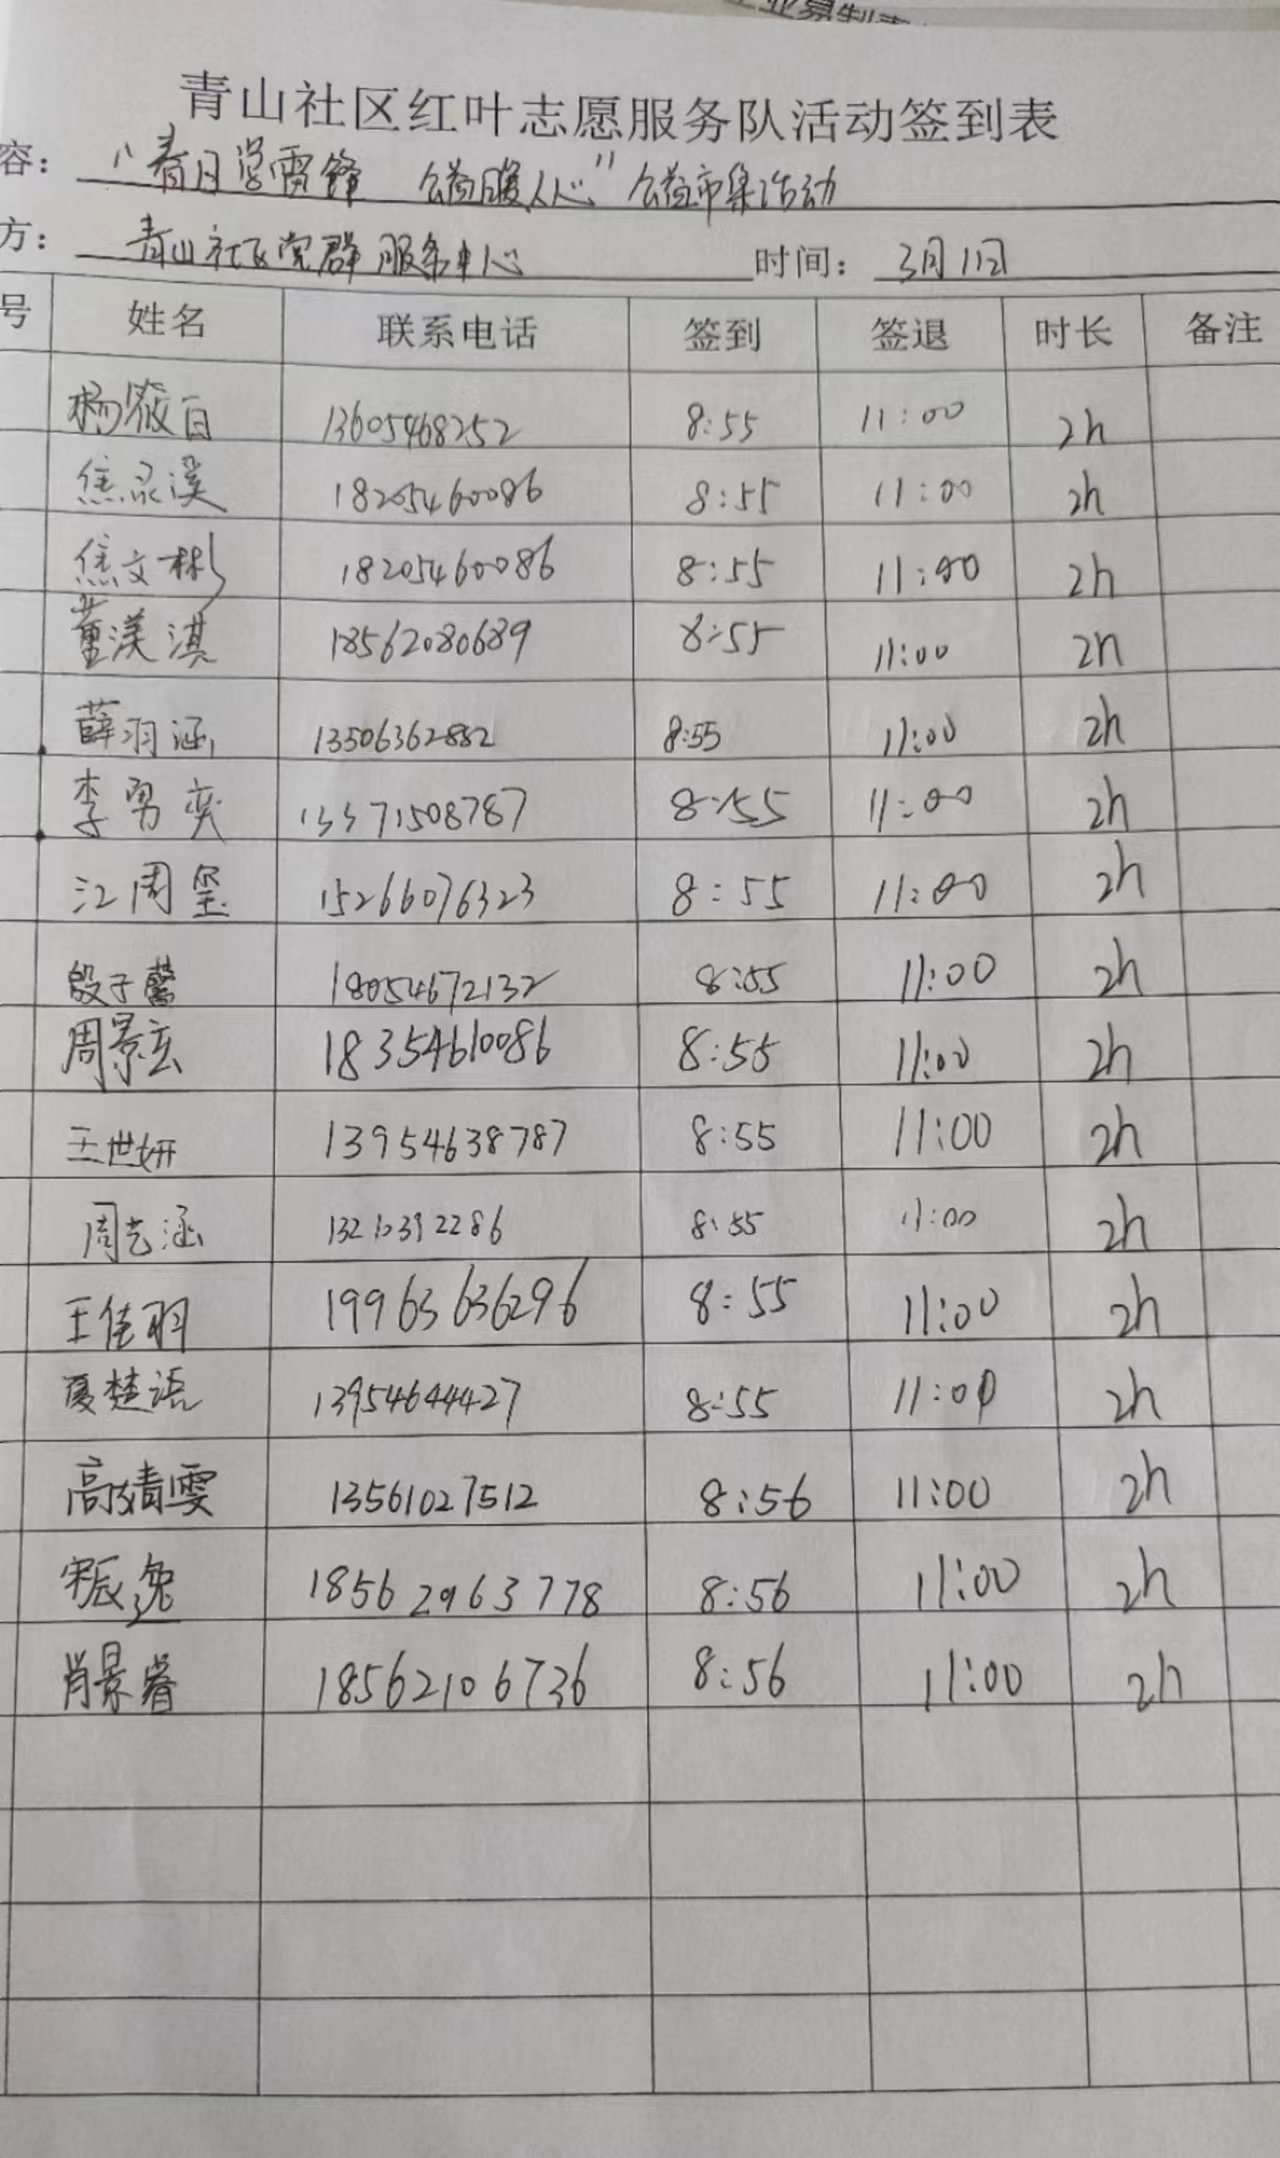 青山社区红叶志愿服务队活动签到表
容： “春日学雷锋 公益暖人心”公益市集活动
方： 青山社区党群服务中心 时间： 3月11日
号 姓名 联系电话 签到 签退 时长 备注
杨筱白 13605468252 8:55 11:00 2h
焦录溪 18205460086 8:55 11:00 2h
焦文彬 18205460086 8:55 11:00 2h
董渼淇 18562080689 8:55 11:00 2h
薛羽涵 13506362882 8:55 11:00 2h
李勇奕 13371508787 8:55 11:00 2h
江周玺 15266076323 8:55 11:00 2h
殷子馨 18054672132 8:55 11:00 2h
周景玄 18354610086 8:55 11:00 2h
王世妍 13954638787 8:55 11:00 2h
周艺涵 8:55 11:00 2h
王佳羽 19963636296 8:55 11:00 2h
夏楚语 13954644427 8:55 11:00 2h
高婧雯 13561027512 8:56 11:00 2h
宋辰逸 18562963778 8:56 11:00 2h
肖景睿 18562106736 8:56 11:00 2h